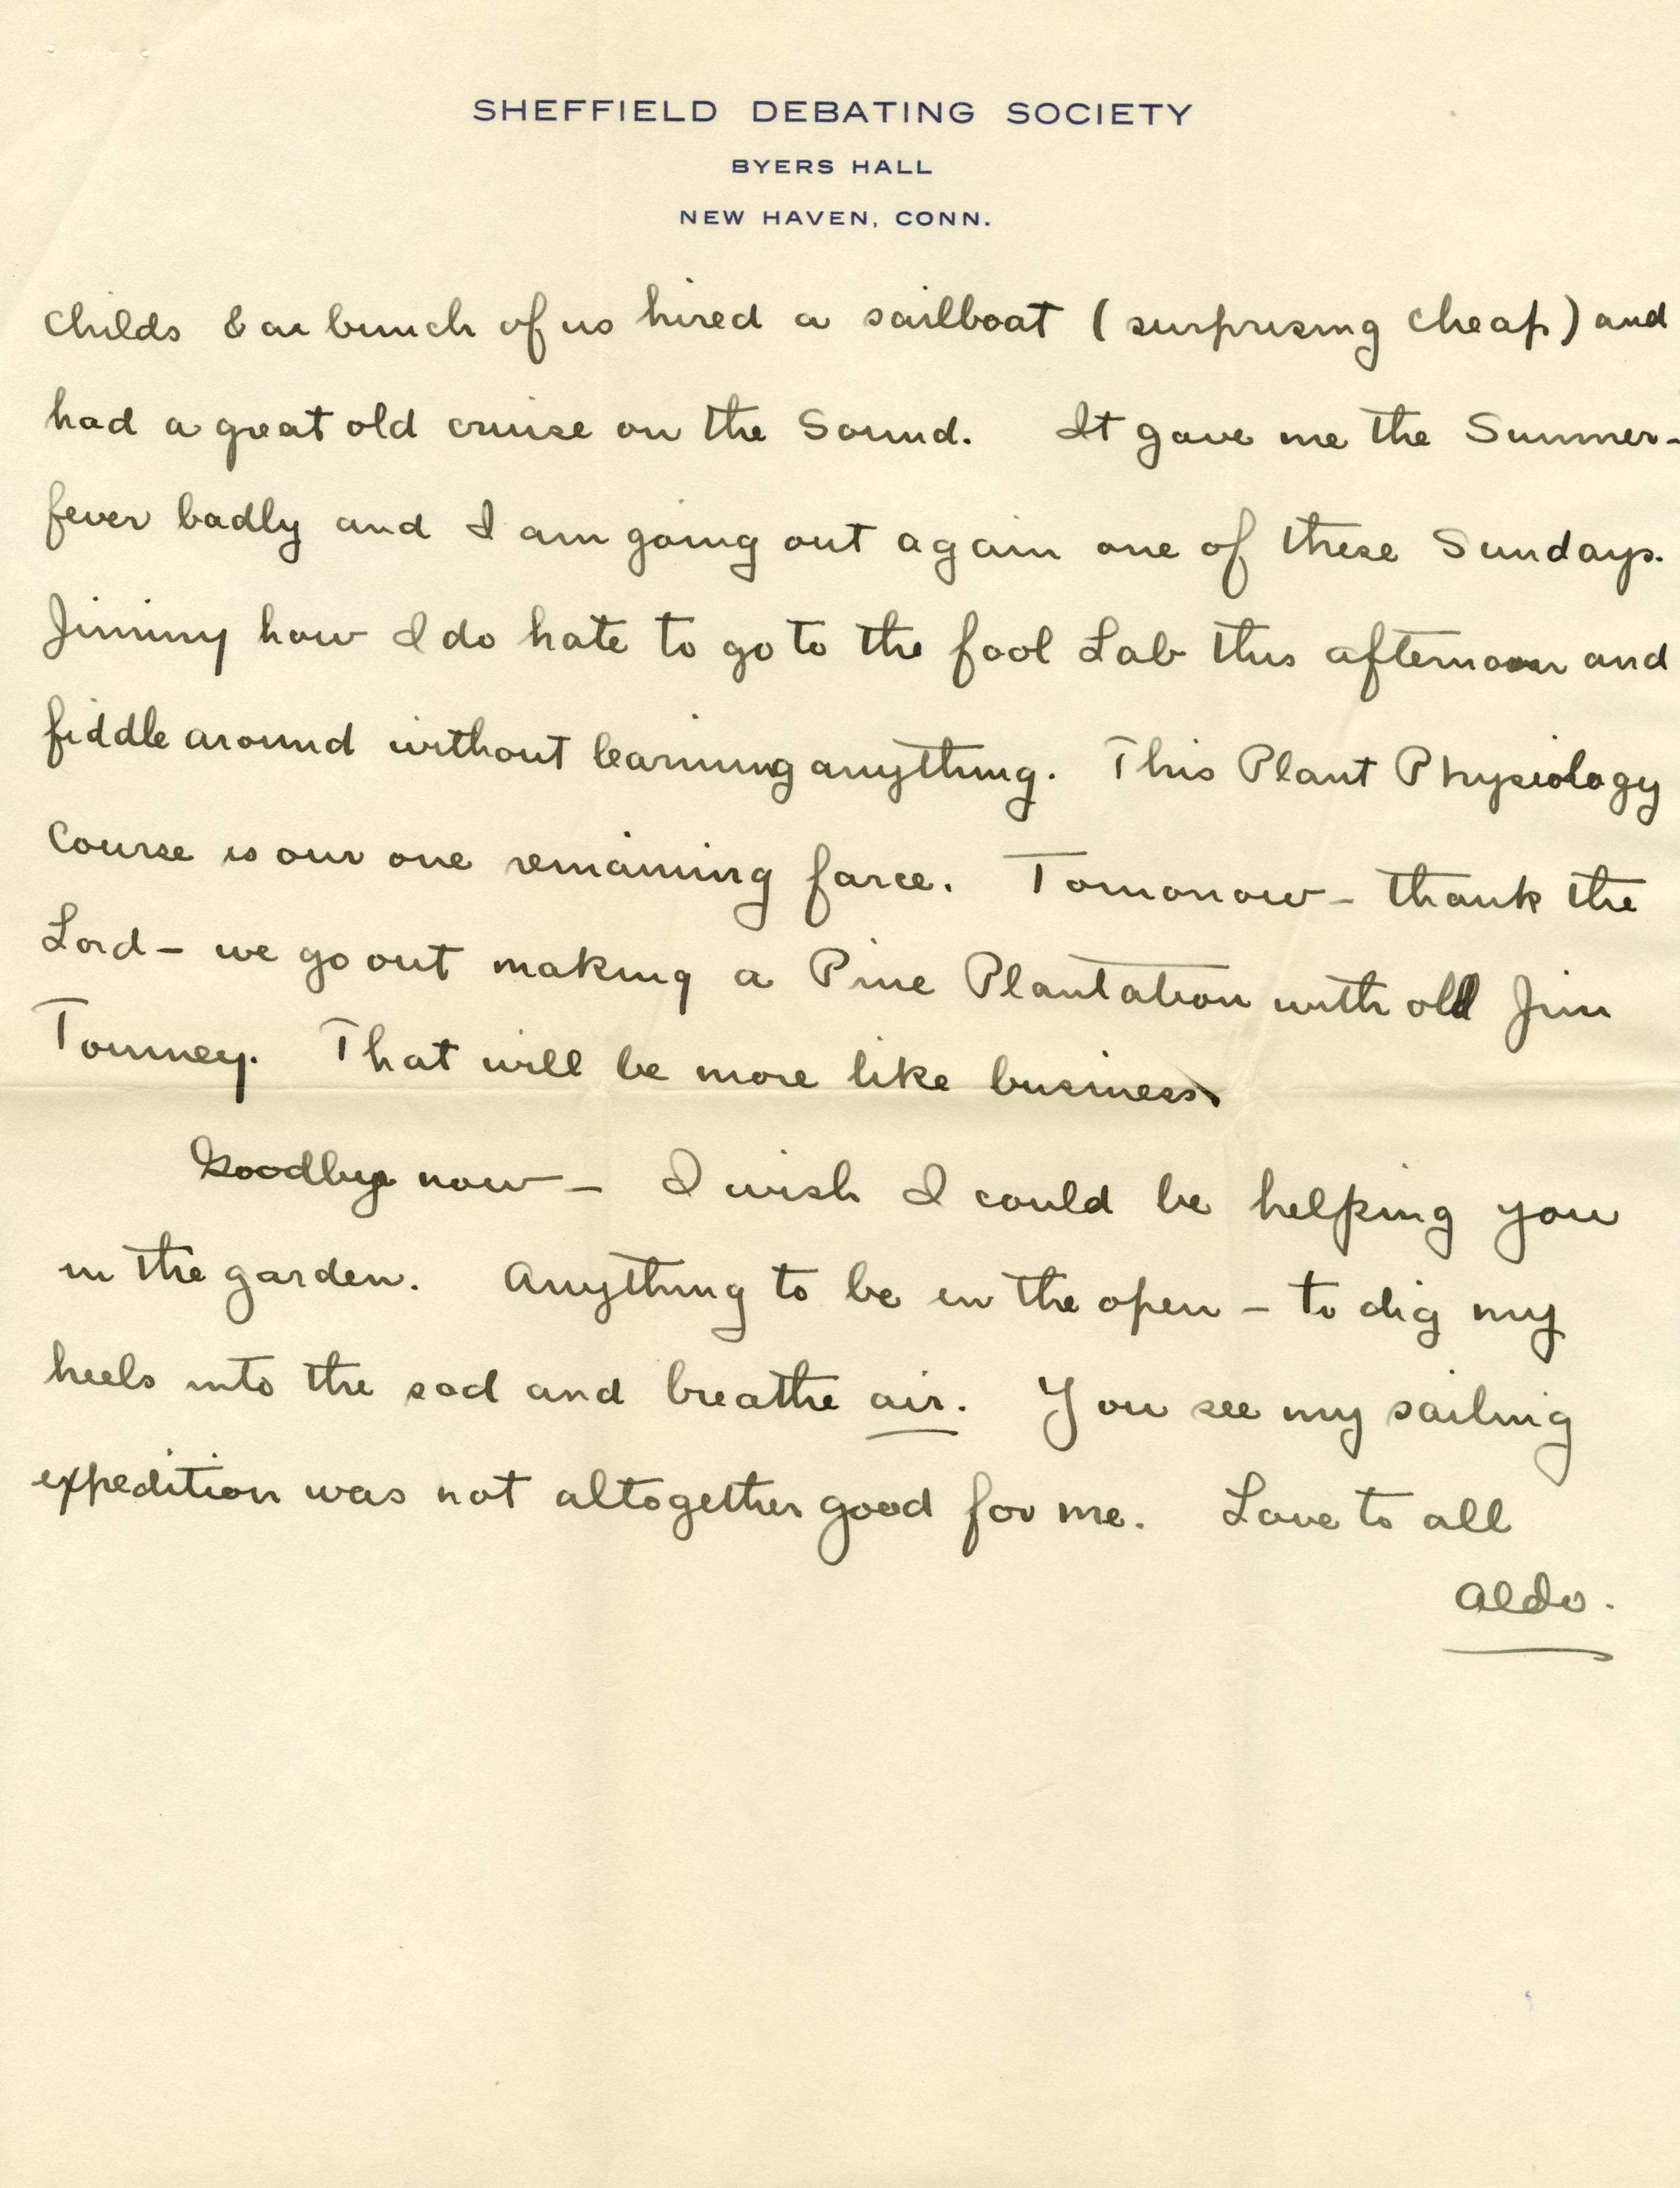 SHEFFIELD DEBATING SOCIETY
BYERS HALL
NEW HAVEN, CONN.
Childs & a bunch of us hired a sailboat (surprising cheap) and
had a great old cruise on the Sound. It gave me the Summer-
fever badly and I am going out again one of these Sundays.
Jiminy how I do hate to go to the fool Lab this afternoon and
fiddle around without learning anything. This Plant Physiology
Course is our one remaining farce. Tomorrow – thank the
Lord – we go out making a Pine Plantation with old Jim
Toumey. That will be more like business.
Goodbye now – I wish I could be helping you
in the garden. Anything to be in the open – to dig my
heels into the sod and breathe air. You see my sailing
expedition was not altogether good for me. Love to all
Aldo.